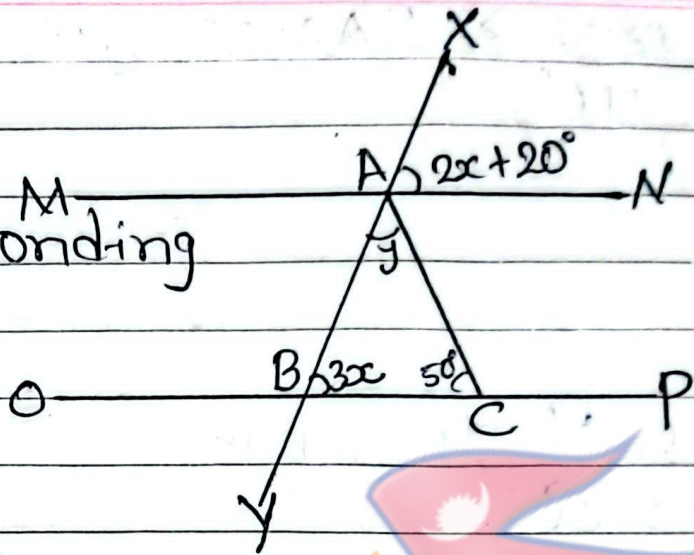 X
A 2x+20°
M N
onding
y
B 3x 50° C
O P
Y